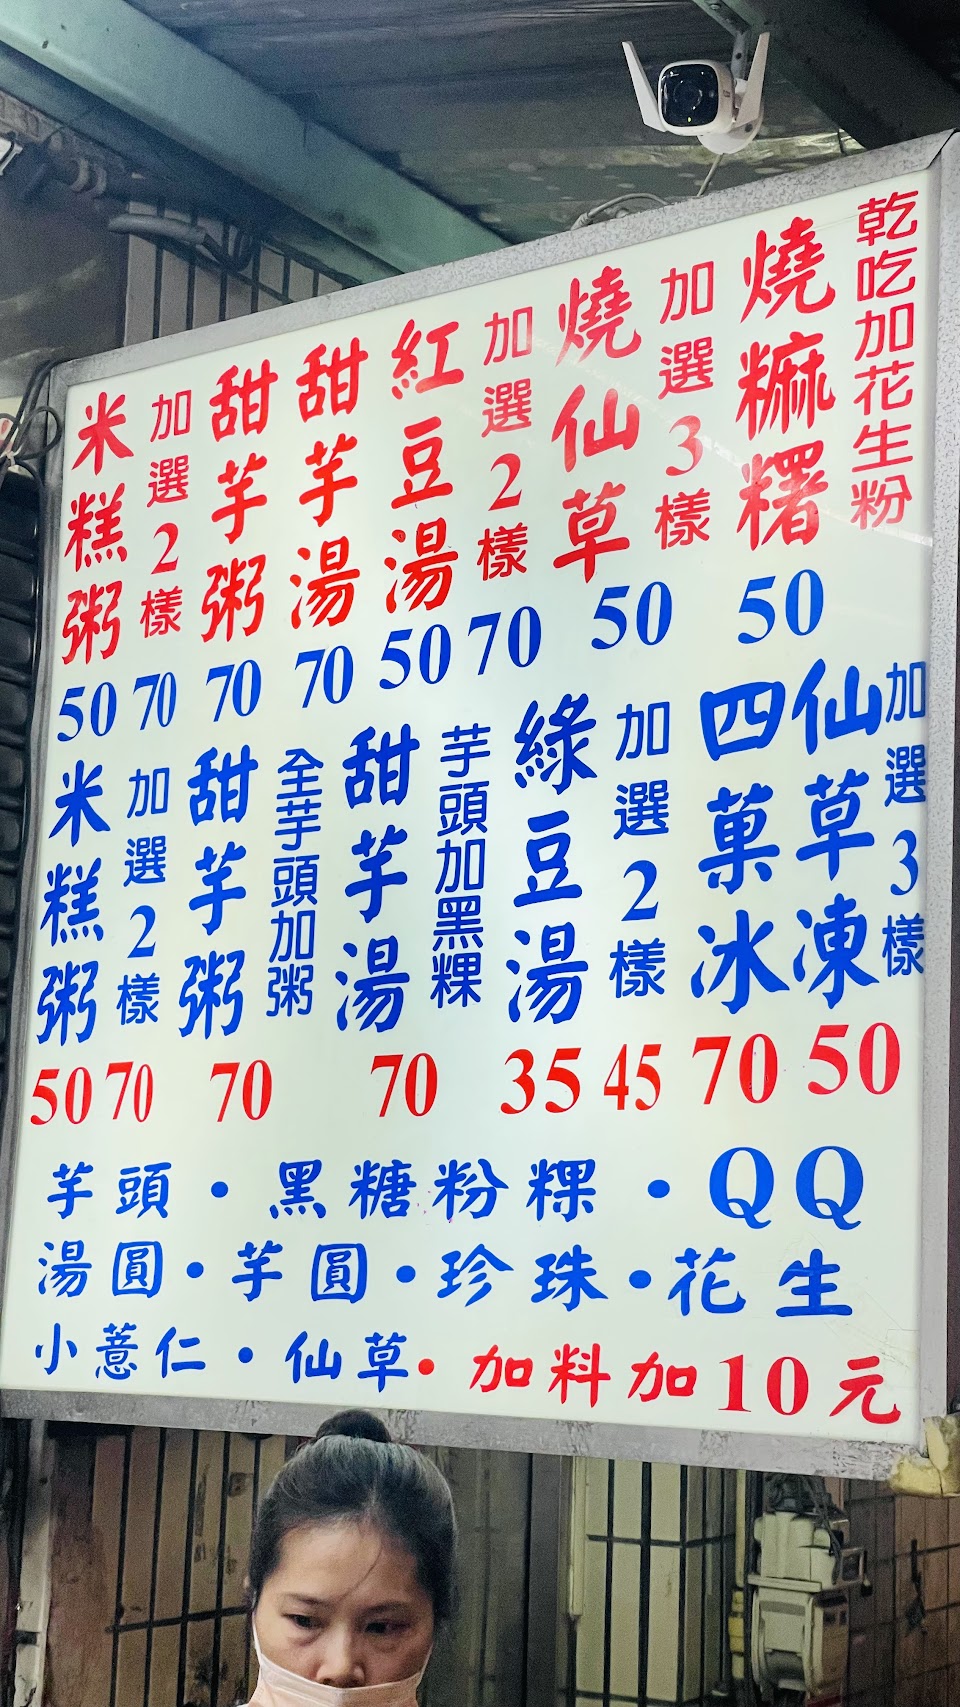 米糕粥
加選2樣
甜芋粥
甜芋湯
紅豆湯
加選2樣
燒仙草
加選3樣
燒䊳糬
乾吃加花生粉
50 70 70 70 50 70 50 50
米糕粥
加選2樣
甜芋粥
全芋頭加粥
甜芋湯
芋頭加黑粿
綠豆湯
加選2樣
四菓冰
仙草凍
加選3樣
50 70 70 70 35 45 70 50
芋頭・黑糖粉粿・QQ
湯圓・芋圓・珍珠・花生
小薏仁・仙草・加料加10元